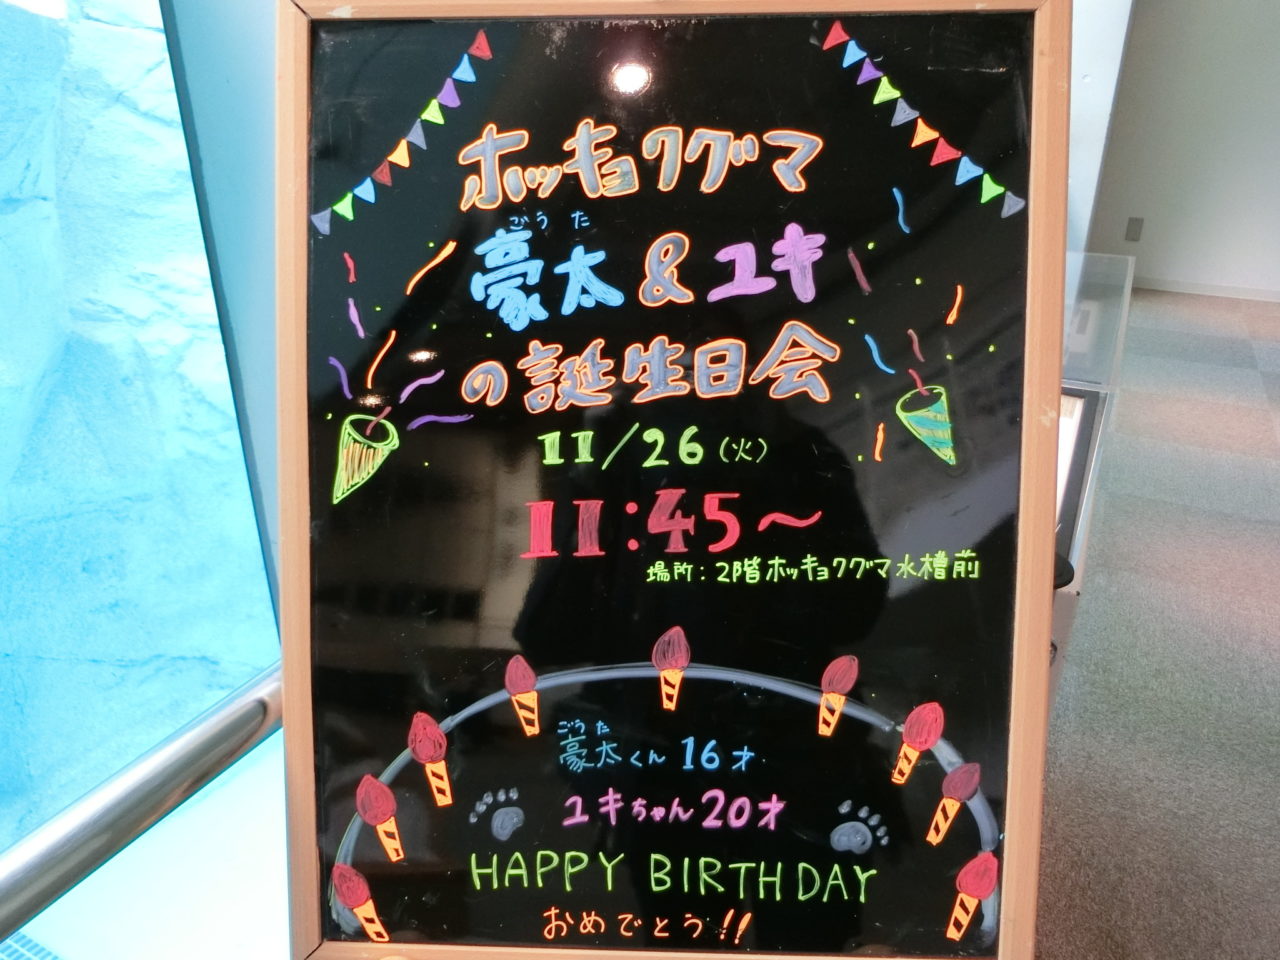 ホッキョクグマ
ごうた
豪太&ユキ
の誕生日会
11/26(火)
11:45〜
場所:2階ホッキョクグマ水槽前
ごうた
豪太くん16才
ユキちゃん20才
HAPPY BIRTHDAY
おめでとう!!